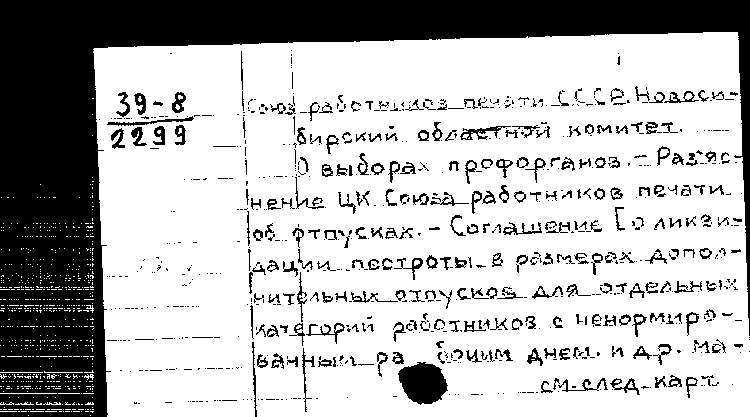 39-8
2299
Союз работников печати СССР. Новоси-
бирский областной комитет.
О выборах профорганов. - Разъяс-
нение ЦК Союза работников печати
об отпусках. - Соглашение [о ликви-
дации пестроты в размерах допол-
нительных отпусков для отдельных
категорий работников с ненормиро-
ванным рабочим днем. и др. ма-
см. след. карт